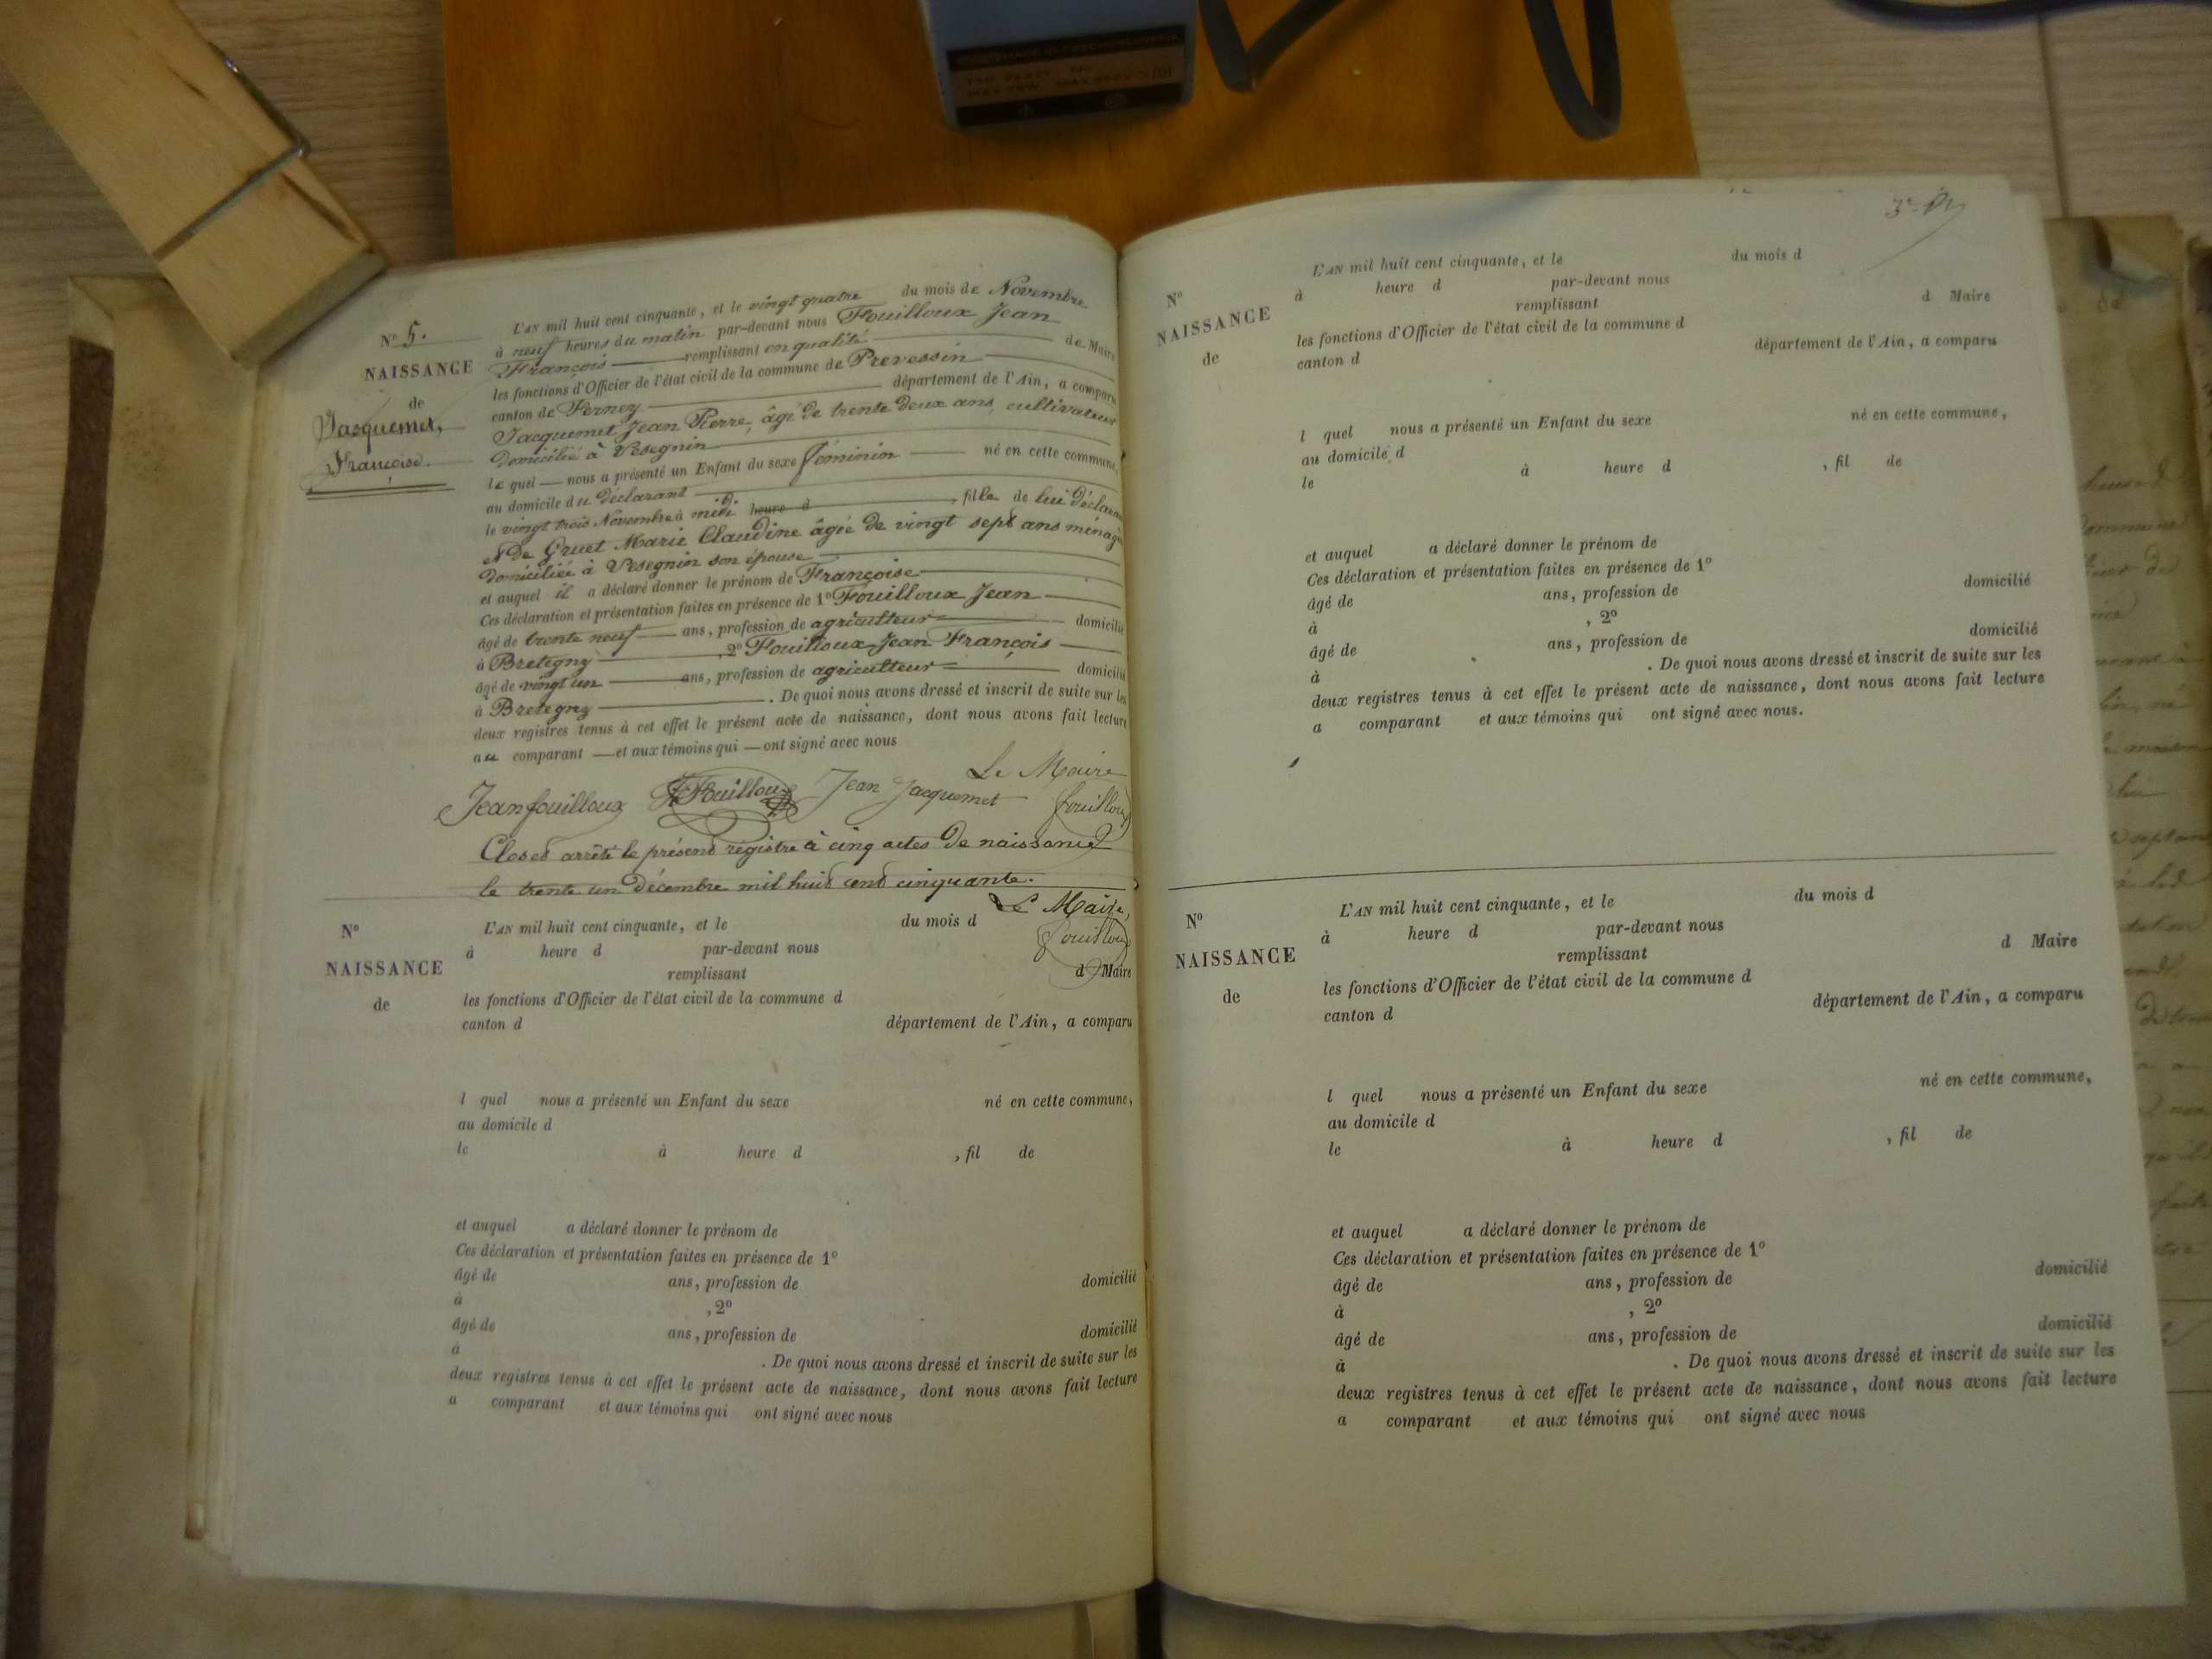 N° 5.
NAISSANCE
de
Jacquemet,
Françoise.
L'AN mil huit cent cinquante, et le vingt quatre du mois de Novembre
à neuf heures du matin par-devant nous Fouilloux Jean
François remplissant en qualité de Maire
les fonctions d'Officier de l'état civil de la commune de Prevessin
canton de Ferney département de l'Ain, a comparu
Jacquemet Jean Pierre, âgé de trente deux ans, cultivateur
domicilié à Vesegnin
le quel nous a présenté un Enfant du sexe féminin né en cette commune,
au domicile du déclarant
le vingt trois Novembre à midi heure d , fille de lui déclarant
et de Gruet Marie Claudine âgée de vingt sept ans ménagère
domiciliée à Vesegnin son épouse
et auquel il a déclaré donner le prénom de Françoise
Ces déclaration et présentation faites en présence de 1° Fouilloux Jean
âgé de trente neuf ans, profession de agriculteur domicilié
à Bretegny , 2° Fouilloux Jean François
âgé de vingt un ans, profession de agriculteur domicilié
à Bretegny . De quoi nous avons dressé et inscrit de suite sur les
deux registres tenus à cet effet le présent acte de naissance, dont nous avons fait lecture
au comparant et aux témoins qui ont signé avec nous
Le Maire
Jean fouilloux Fouilloux Jean Jacquemet fouilloux
Clos et arrêté le présent régistre à cinq actes de naissance
le trente un Décembre mil huit cent cinquante.
Le Maire,
fouilloux
N°
NAISSANCE
de
L'AN mil huit cent cinquante, et le du mois d
à heure d par-devant nous
remplissant d Maire
les fonctions d'Officier de l'état civil de la commune d
canton d département de l'Ain, a comparu
l quel nous a présenté un Enfant du sexe né en cette commune,
au domicile d
le à heure d , fil de
et auquel a déclaré donner le prénom de
Ces déclaration et présentation faites en présence de 1°
âgé de ans, profession de domicilié
à , 2°
âgé de ans, profession de domicilié
à . De quoi nous avons dressé et inscrit de suite sur les
deux registres tenus à cet effet le présent acte de naissance, dont nous avons fait lecture
a comparant et aux témoins qui ont signé avec nous
N°
NAISSANCE
de
L'AN mil huit cent cinquante, et le du mois d
à heure d par-devant nous
remplissant d Maire
les fonctions d'Officier de l'état civil de la commune d
canton d département de l'Ain, a comparu
l quel nous a présenté un Enfant du sexe né en cette commune,
au domicile d
le à heure d , fil de
et auquel a déclaré donner le prénom de
Ces déclaration et présentation faites en présence de 1°
âgé de ans, profession de domicilié
à , 2°
âgé de ans, profession de domicilié
à . De quoi nous avons dressé et inscrit de suite sur les
deux registres tenus à cet effet le présent acte de naissance, dont nous avons fait lecture
a comparant et aux témoins qui ont signé avec nous.
N°
NAISSANCE
de
L'AN mil huit cent cinquante, et le du mois d
à heure d par-devant nous
remplissant d Maire
les fonctions d'Officier de l'état civil de la commune d
canton d département de l'Ain, a comparu
l quel nous a présenté un Enfant du sexe né en cette commune,
au domicile d
le à heure d , fil de
et auquel a déclaré donner le prénom de
Ces déclaration et présentation faites en présence de 1°
âgé de ans, profession de domicilié
à , 2°
âgé de ans, profession de domicilié
à . De quoi nous avons dressé et inscrit de suite sur les
deux registres tenus à cet effet le présent acte de naissance, dont nous avons fait lecture
a comparant et aux témoins qui ont signé avec nous